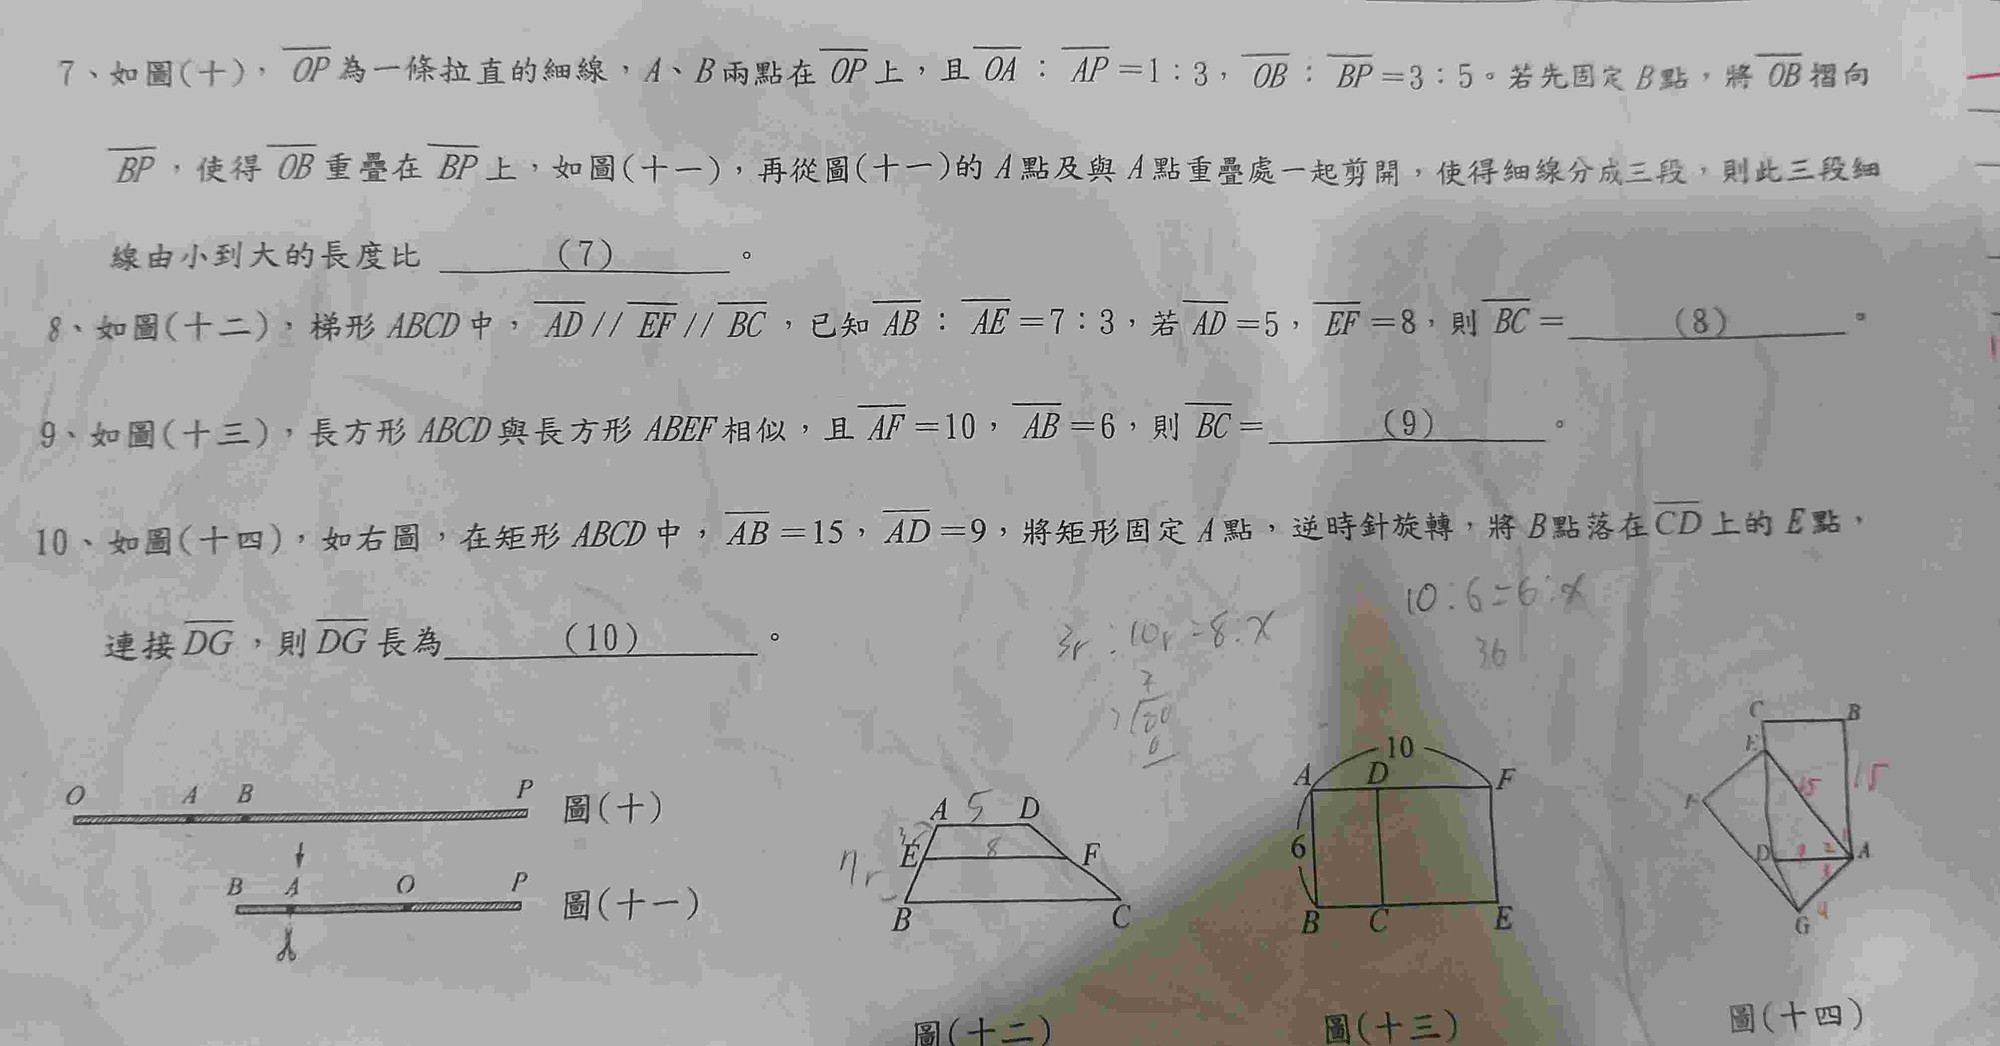 7、如圖(十),OP為一條拉直的細線,A、B兩點在OP上,且OA:AP=1:3,OB:BP=3:5。若先固定B點,將OB摺向
BP,使得OB重疊在BP上,如圖(十一),再從圖(十一)的A點及與A點重疊處一起剪開,使得細線分成三段,則此三段細
線由小到大的長度比 (7) 。
8、如圖(十二),梯形ABCD中,AD//EF//BC,已知AB:AE=7:3,若AD=5,EF=8,則BC= (8) 。
9、如圖(十三),長方形ABCD與長方形ABEF相似,且AF=10,AB=6,則BC= (9) 。
10、如圖(十四),如右圖,在矩形ABCD中,AB=15,AD=9,將矩形固定A點,逆時針旋轉,將B點落在CD上的E點,
連接DG,則DG長為 (10) 。
3r:10r=8:x
10:6=6:x
36
O A B P 圖(十)
B A O P 圖(十一)
A 5 D
E 8 F
B C
圖(十二)
10
A D F
6
B C E
圖(十三)
C B
E
15 15
D 9 A
G
圖(十四)